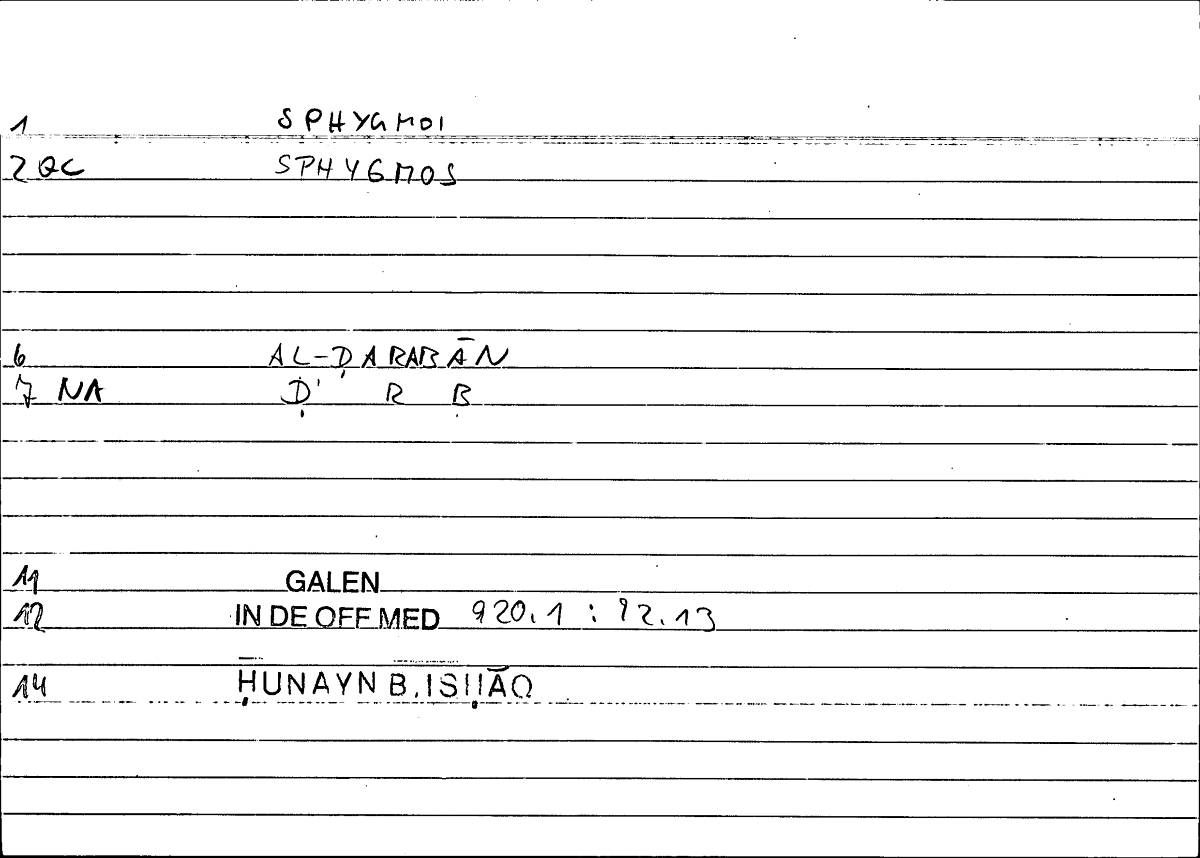 1 SPHYGMOI
2 QC SPHYGMOS
6 AL-ḌARABĀN
7 NA Ḍ R B
11 GALEN
12 IN DE OFF MED 920.1 : 92.13
14 ḤUNAYN B. ISḤĀQ